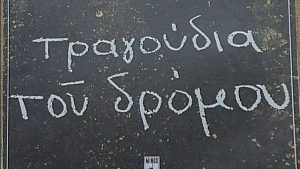 τραγούδια
τοῦ δρόμου
MINOS